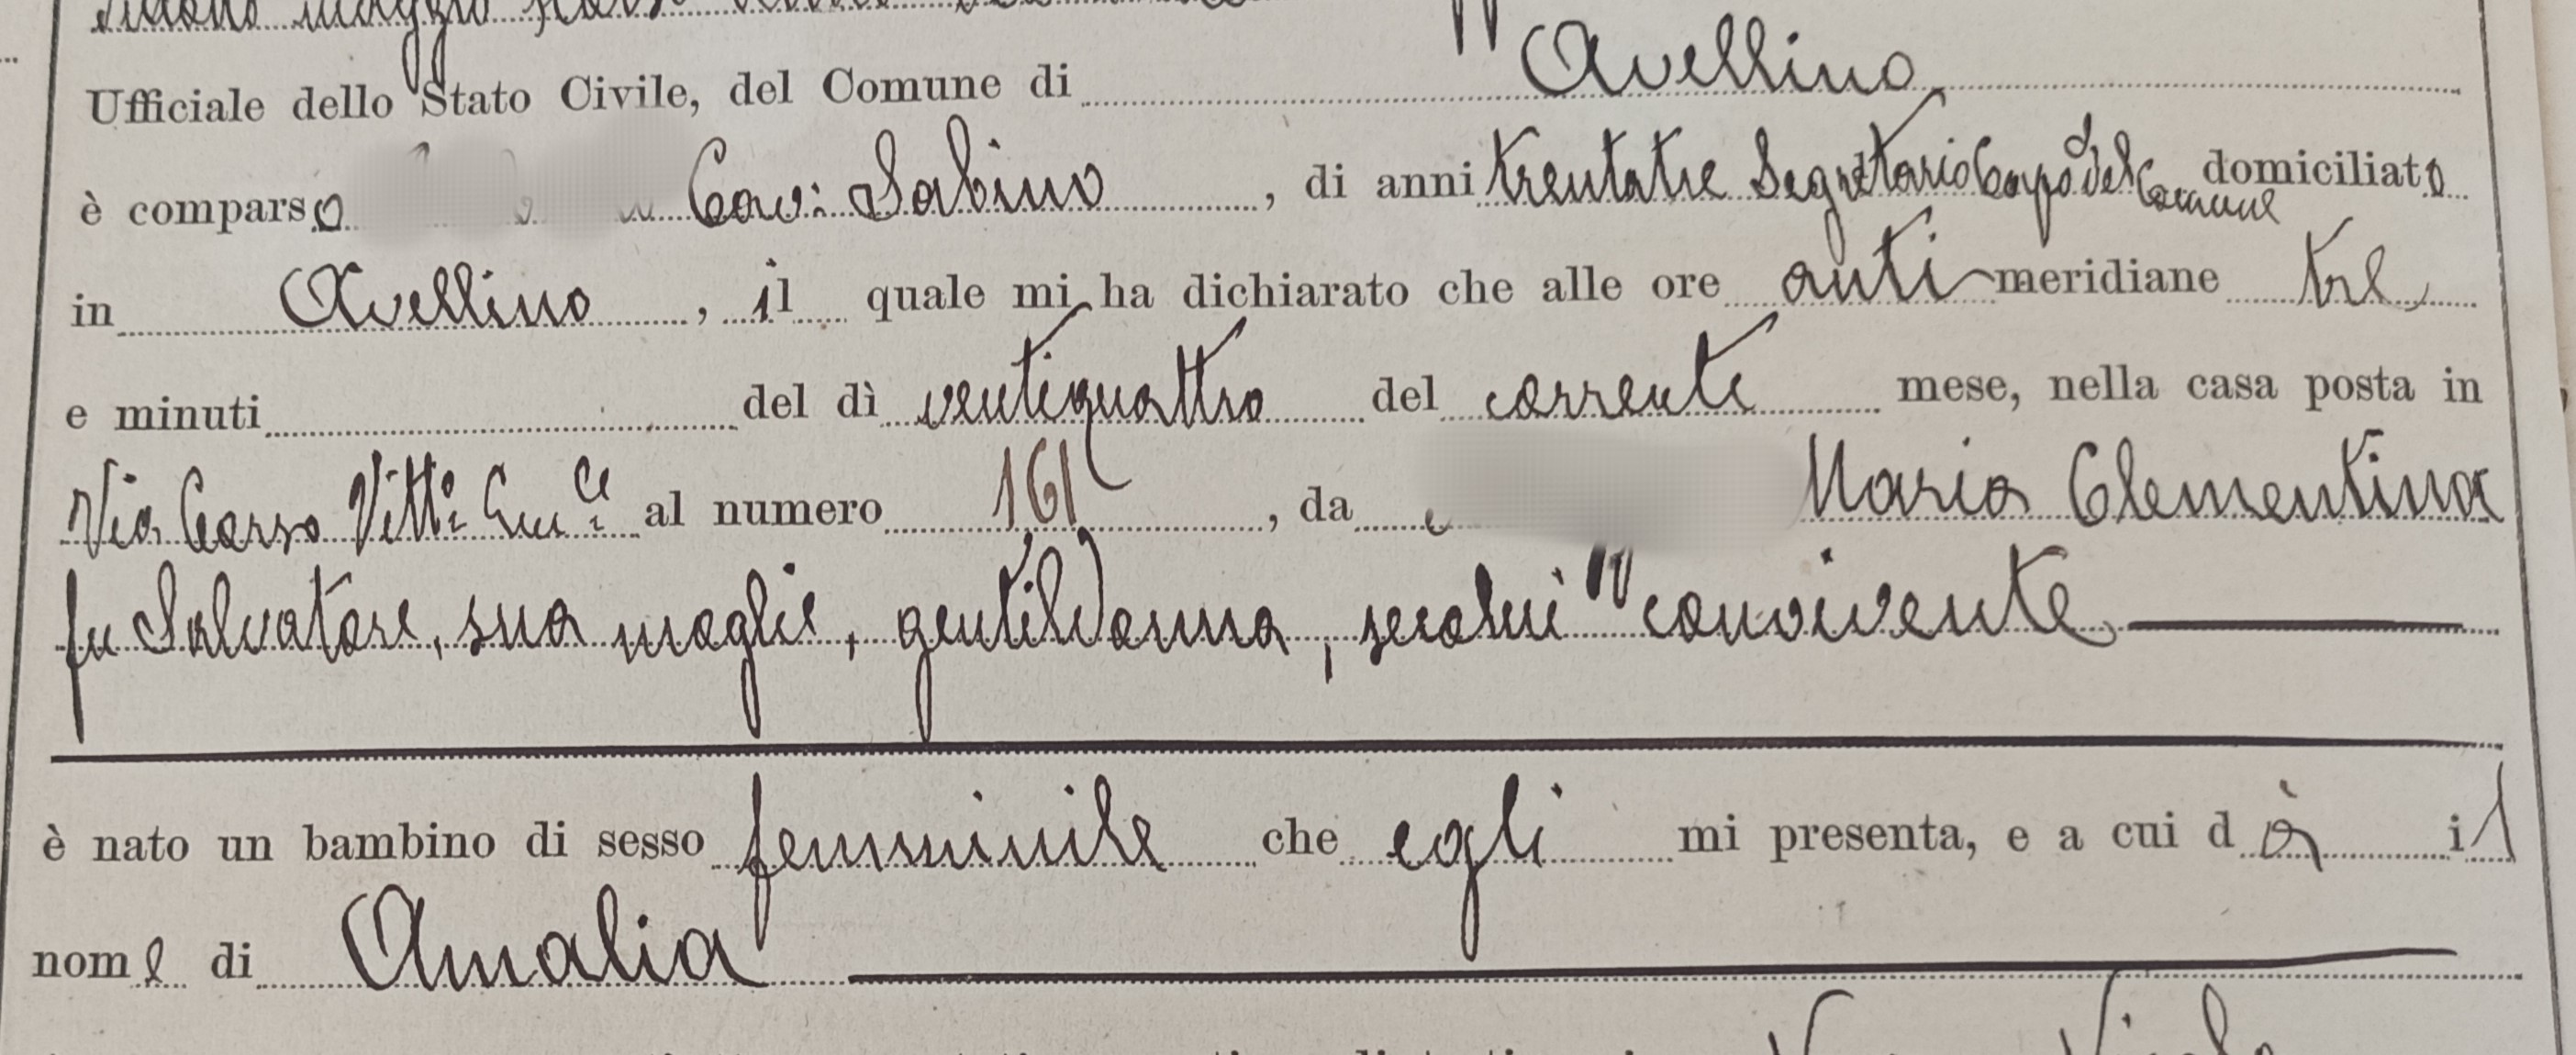 Ufficiale dello Stato Civile, del Comune di Avellino
è comparso Cav: Sabino, di anni trentatre Segretario Capo del Comune domiciliato
in Avellino, il quale mi ha dichiarato che alle ore anti meridiane tre
e minuti del dì ventiquattro del corrente mese, nella casa posta in
Via Corso Vitt: Em: al numero 161, da Maria Clementina
fu Salvatore, sua moglie, gentildonna, secolui convivente
è nato un bambino di sesso femminile che egli mi presenta, e a cui dà il
nome di Amalia